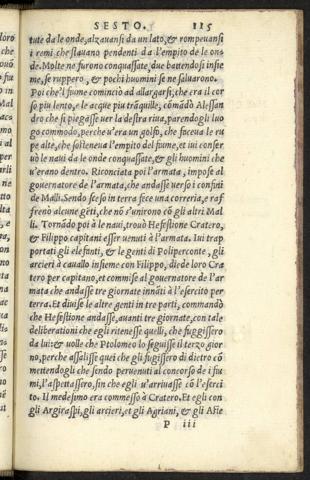 SESTO. 115
tute da le onde, alzavansi da un lato, & rompevansi
i remi, che stavano pendenti da l'empito de le on
de. Molte ne furono conquassate, due battendosi insie
me, se ruppero, & pochi huomini se ne salvarono.
Poi che'l fiume cominciò ad allargarsi, che era il cor
so più lento, e le acque piu trāquille, comādò Alessan
dro che si piegasse ver la destra riva, parendogli luo
go commodo, perche v'era un golfo, che faceva le ru
pe alte, che sosteneva l'empito del fiume, et ivi conser
vò le navi da le onde conquassate, & gli huomini che
v'erano dentro. Riconciata poi l'armata, impose al
governatore de l'armata, che andasse verso i confini
de Malli. Sendo sceso in terra fece una correria, e raf
frenò alcune gēti, che nō s'unirono cō gli altri Mal
li. Tornādo poi à le navi, trovò Hefestione Cratero,
& Filippo capitani esser venuti à l'armata. lui trap
portati gli elefanti, & le genti di Poliperconte, gli
arcieri à cavallo insieme con Filippo, diede loro Cra
tero per capitano, et commise al governatore de l'ar
mata che andasse tre giornate innāti à l'esercito per
terra. Et divise le altre genti in tre parti, commandò
che Hefestione andasse, avanti tre giornate, con tale
deliberationi che egli ritenesse quelli, che fuggissero
da lui: & volle che Ptolomeo lo seguisse il terzo gior
no, perche assalisse quei che gli fugissero di dietro cō
mettendogli che sendo pervenuto al concorso de i fiu
mi, l'aspettassero, sin che egli v'arrivasse cō l'eserci
to. Il medesimo era commesso à Cratero. Et egli con
gli Argiraspi, gli arcieri, et gli Agriani, & gli Aste
P iii